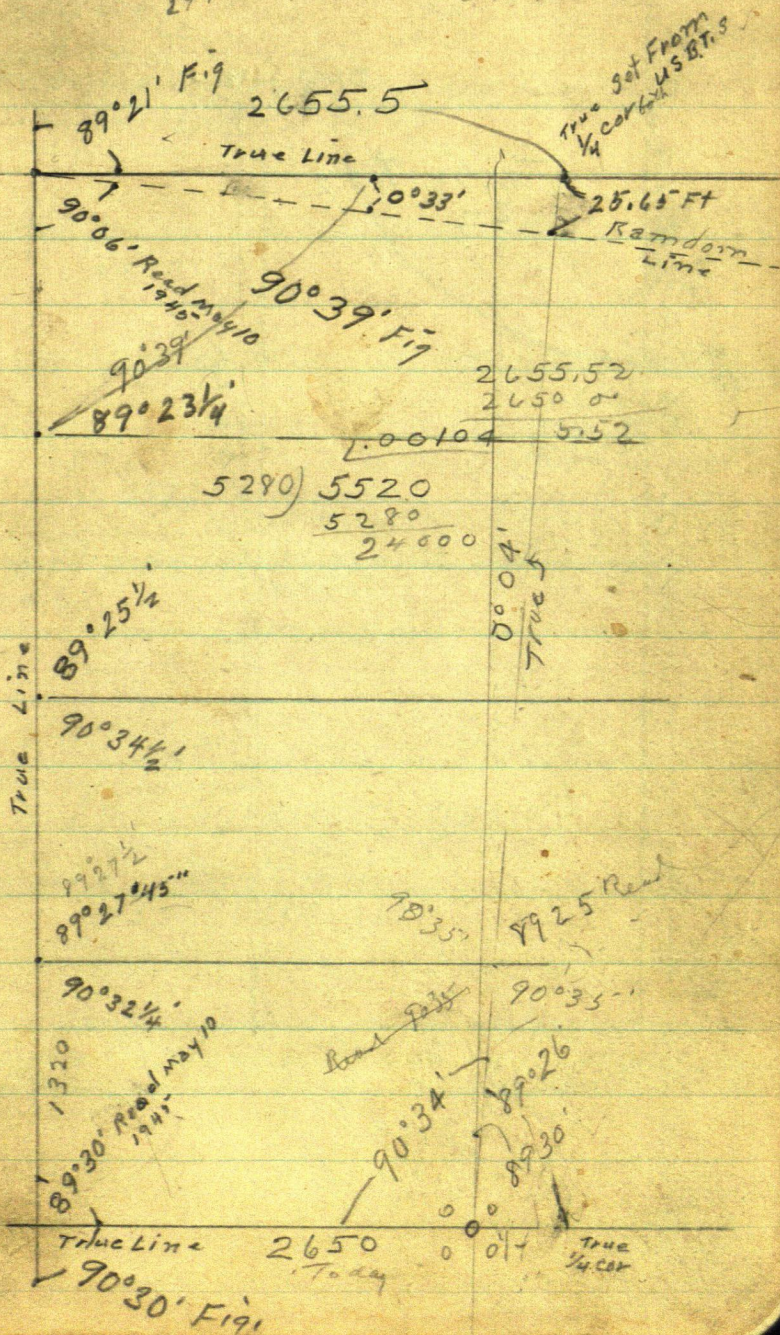 89°21' Fig
2655.5
True Set From
1/4 Cor USB.T.S
True Line
0°33'
25.65 Ft
Ramdom
Line
90°06' Read May 10
1945
90°39' Fig
90°39'
89°23 1/4'
2655.52
2650 00
5.52
1.00104
5280) 5520
5280
24000
0°04'
True
89°25 1/2
True Line
90°34 1/2'
89°27 1/2'
89°27'45"
90°35'
8925 Read
90°32 1/4'
90°35'
Read 9035
1320
89°30' Read May 10
1945
90°34'
89°26'
8930'
True Line
2650
Today
True
1/4 Cor
90°30' Fig.